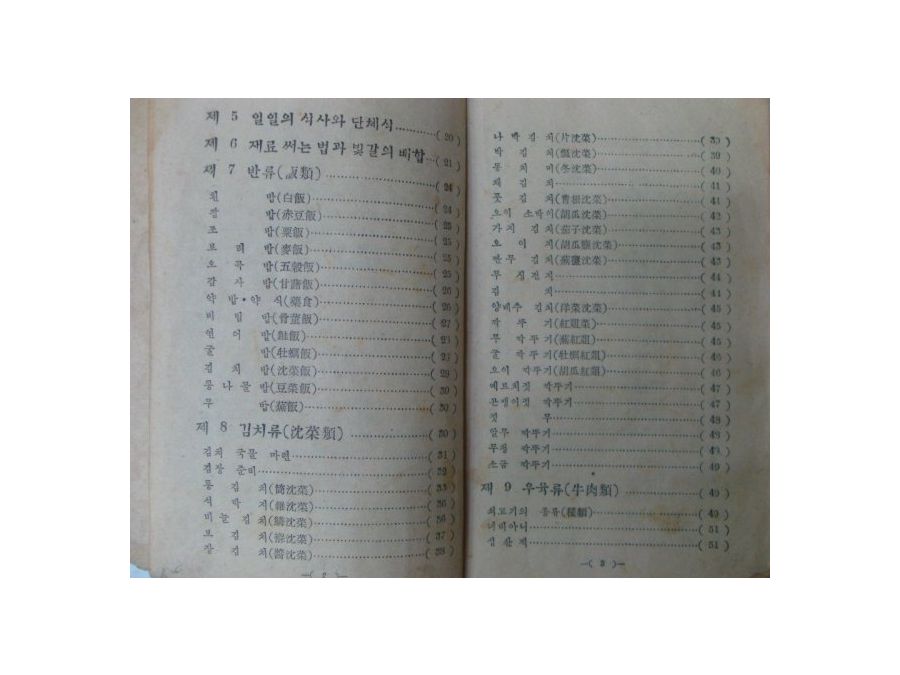 제 5 일일의 식사와 단체식 (20)
제 6 재료 써는 법과 빛갈의 배합 (21)
제 7 반류(飯類) (24)
흰 밥(白飯) (24)
팥 밥(赤豆飯) (25)
조 밥(粟飯) (25)
보리 밥(麥飯) (25)
오곡 밥(五穀飯) (25)
감자 밥(甘藷飯) (26)
약밥·약식(藥食) (26)
비빔 밥(骨董飯) (27)
연어 밥(鰱飯)
굴 밥(牡蠣飯)
김치 밥(沈菜飯) (29)
콩나물 밥(豆菜飯) (30)
무 밥(蕪飯) (30)
제 8 김치류(沈菜類) (30)
김치 국물 마련 (31)
김장 준비 (32)
통 김치(筒沈菜) (33)
석박지(雜沈菜) (36)
비늘김치(鱗沈菜) (36)
보 김치 (37)
장 김치(醬沈菜) (38)
나박김치(片沈菜) (39)
박 김치(瓢沈菜) (39)
동치미(冬沈菜) (40)
채김치 (41)
풋 김치(靑根沈菜) (41)
오이 소박이(胡瓜沈菜) (42)
가지 김치(茄子沈菜) (43)
오이지(胡瓜鹽沈菜) (43)
반무 김치(蕪鹽沈菜) (43)
무 싱건지 (44)
짐 치 (44)
양배추 김치(洋菜沈菜) (45)
깍뚜기(紅沮菜) (45)
무 깍뚜기(蕪紅沮) (45)
굴 깍뚜기(牡蠣紅沮) (46)
오이 깍뚜기(胡瓜紅沮) (46)
메르치젓 깍뚜기 (47)
곤쟁이젓 깍뚜기 (47)
젓 무 (48)
알무 깍뚜기 (48)
무장 깍뚜기 (49)
소금 깍뚜기 (49)
제 9 우육류(牛肉類) (49)
쇠고기의 종류(種類) (49)
너비아니 (51)
섭산적 (51)
—( 3 )—